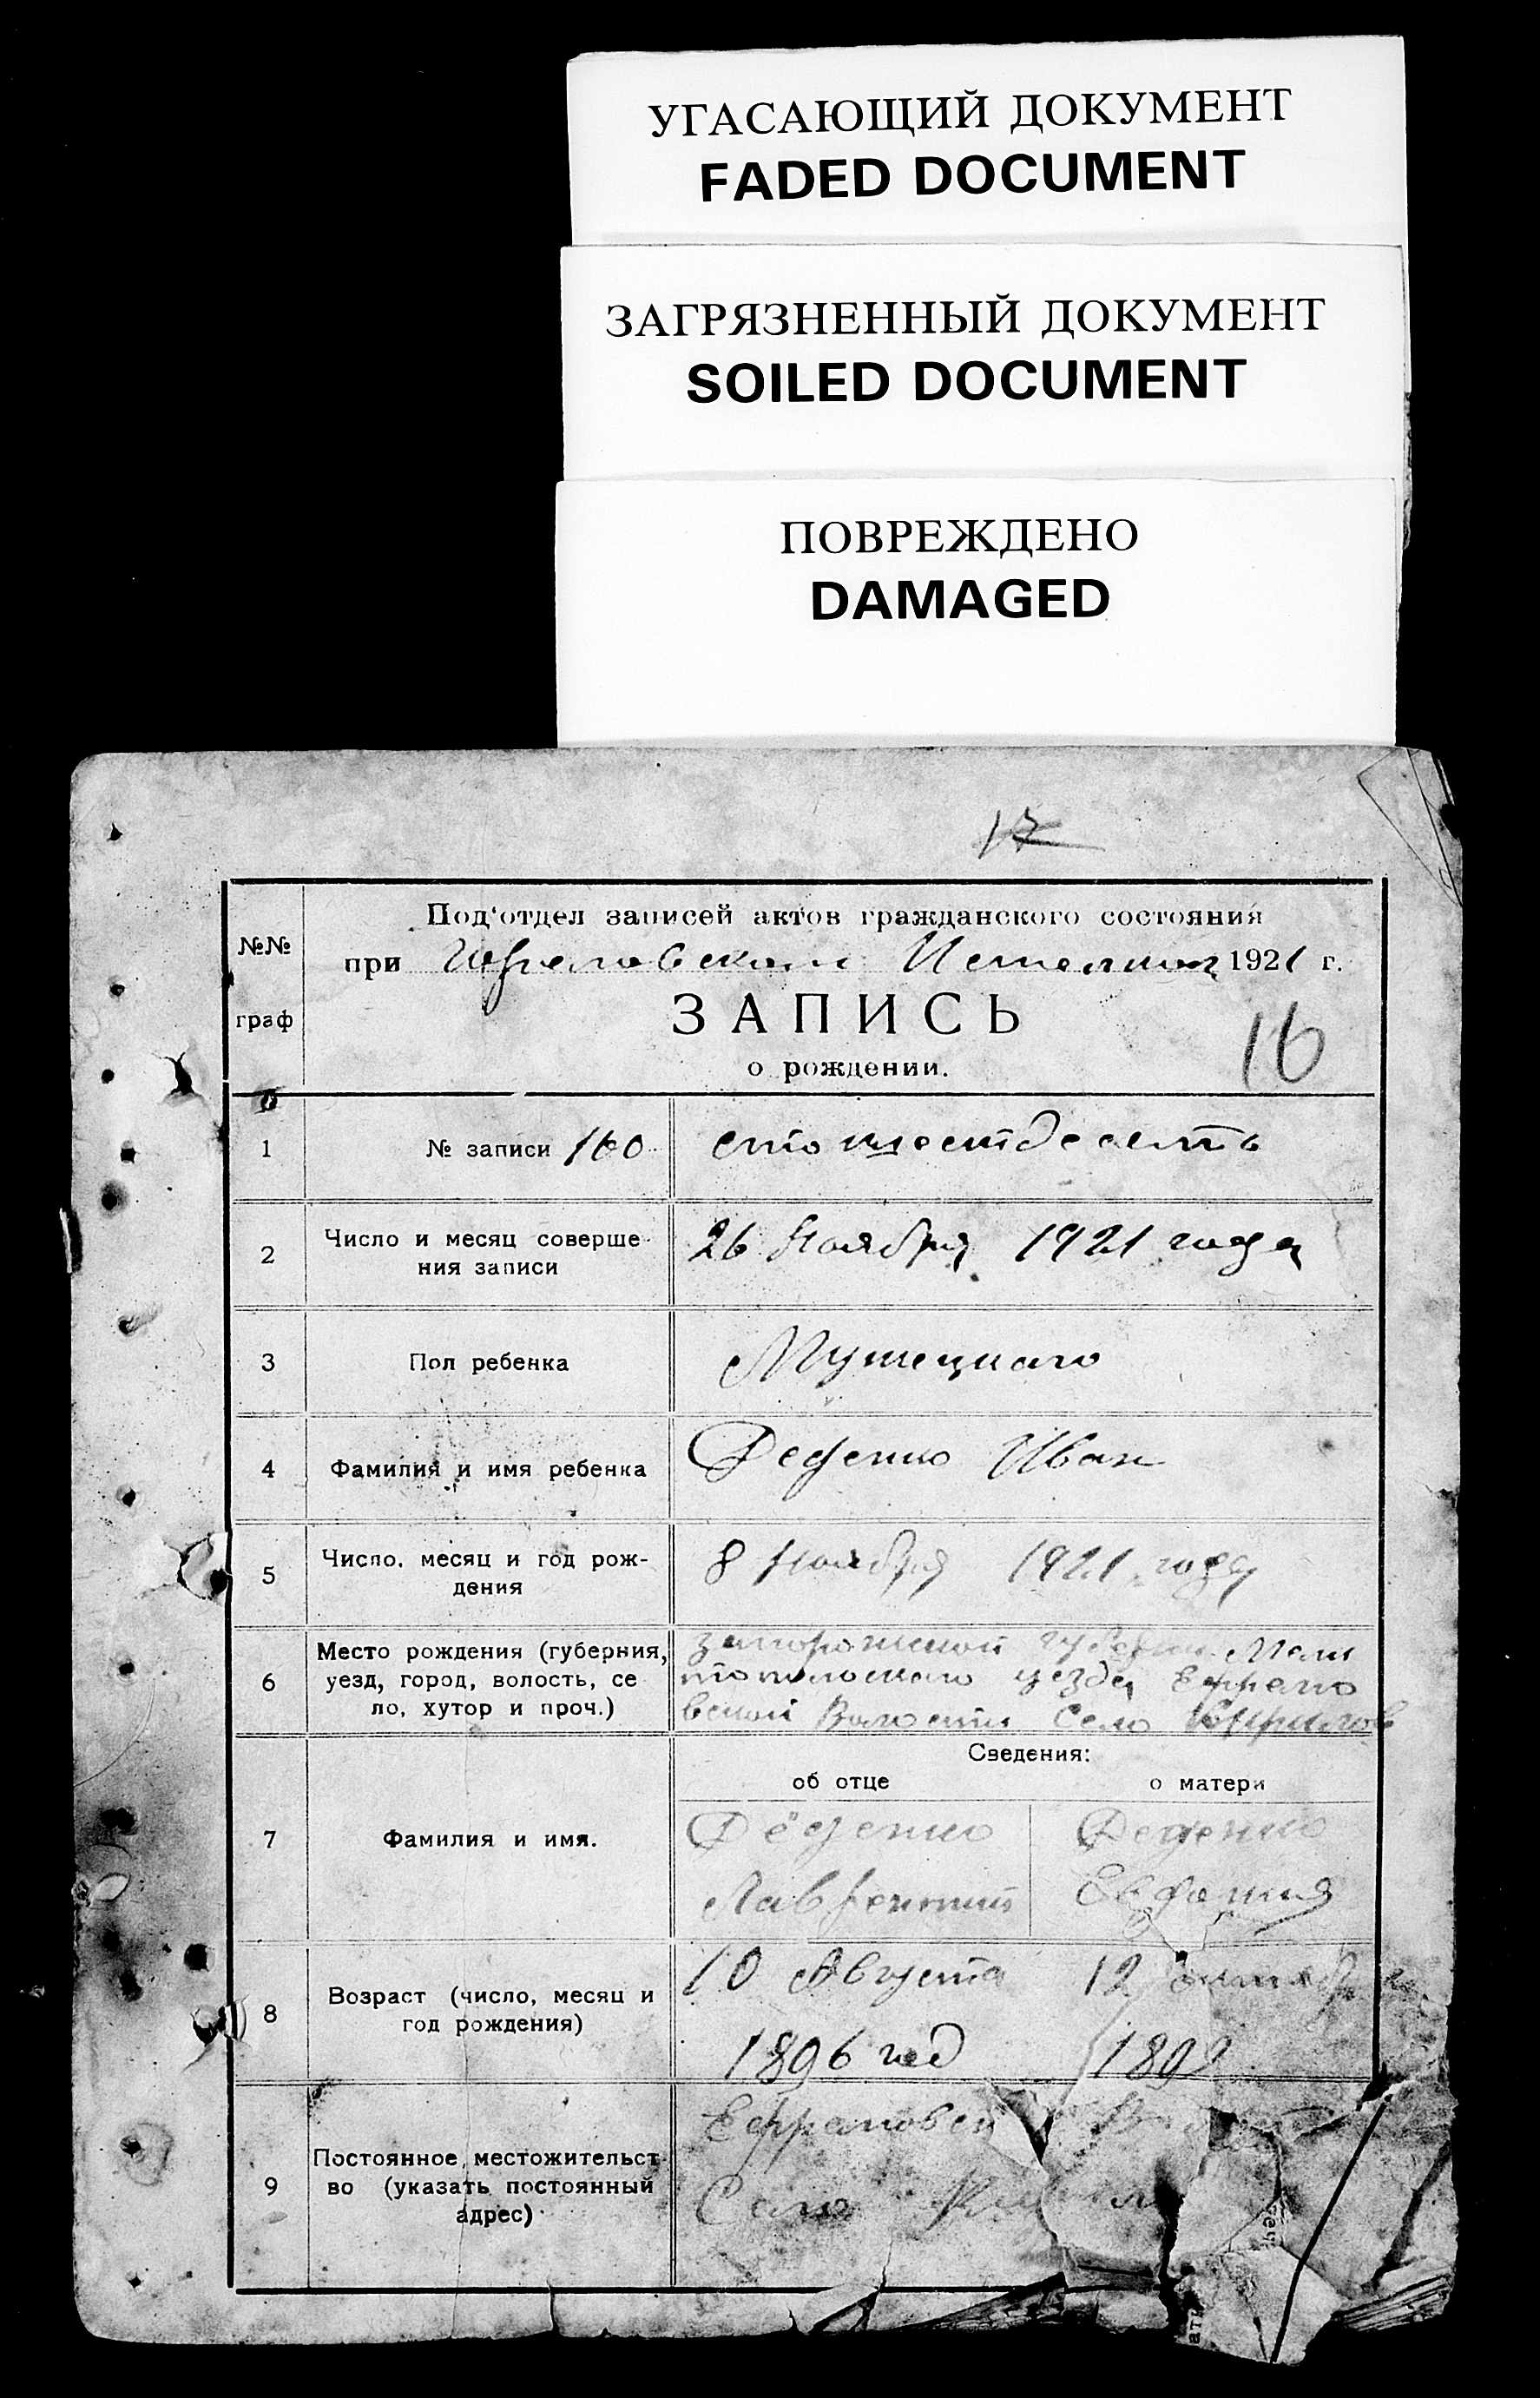 УГАСАЮЩИЙ ДОКУМЕНТ
FADED DOCUMENT
ЗАГРЯЗНЕННЫЙ ДОКУМЕНТ
SOILED DOCUMENT
ПОВРЕЖДЕНО
DAMAGED
17
№№
граф
Под'отдел записей актов гражданского состояния
при 1921 г.
ЗАПИСЬ
о рождении.
16
1
№ записи 160
сто шестдесять
2
Число и месяц соверше-
ния записи
26 Ноября 1921 года
3
Пол ребенка
4
Фамилия и имя ребенка
Деденко Иван
5
Число, месяц и год рож-
дения
8 Ноября 1921 года
6
Место рождения (губерния,
уезд, город, волость, се
ло, хутор и проч.)
запорожской губернии Мели
топольскаго уезда Ефремо
вской Волости Село
Сведения:
об отце
о матери
7
Фамилия и имя.
Деденко
Лаврентий
Деденко
8
Возраст (число, месяц и
год рождения)
10 Августа
1896 год
12 октября
9
Постоянное местожительст
во (указать постоянный
адрес)
Село